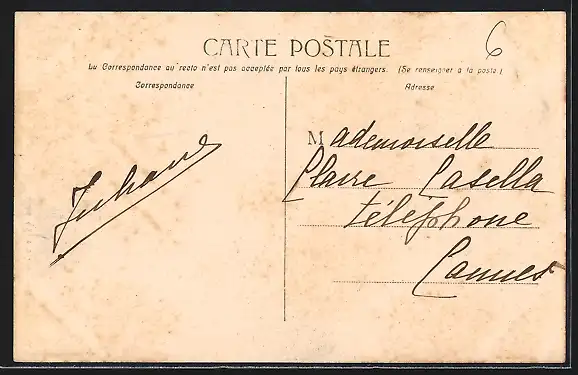 6
CARTE POSTALE
La Correspondance au recto n'est pas acceptée par tous les pays étrangers. (Se renseigner à la poste.)
Correspondance
Adresse
Mademoiselle
Claire Casella
téléphone
Cannes